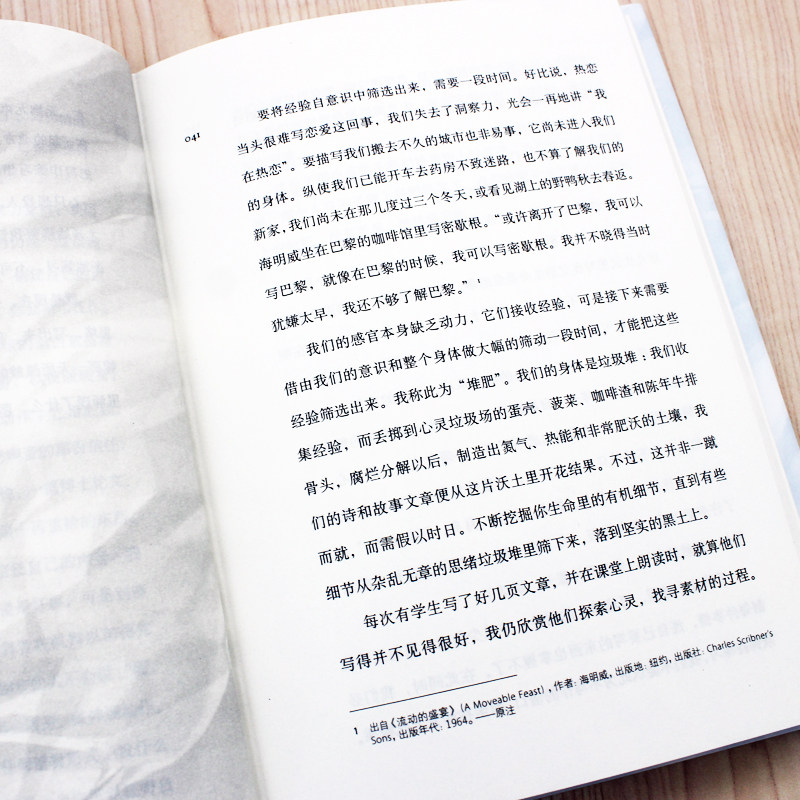 041
要将经验自意识中筛选出来，需要一段时间。好比说，热恋
当头很难写恋爱这回事，我们失去了洞察力，光会一再地讲“我
在热恋”。要描写我们搬去不久的城市也非易事，它尚未进入我们
的身体。纵使我们已能开车去药房不致迷路，也不算了解我们的
新家，我们尚未在那儿度过三个冬天，或看见湖上的野鸭秋去春返。
海明威坐在巴黎的咖啡馆里写密歇根。“或许离开了巴黎，我可以
写巴黎，就像在巴黎的时候，我可以写密歇根。我并不晓得当时
犹嫌太早，我还不够了解巴黎。”1
我们的感官本身缺乏动力，它们接收经验，可是接下来需要
借由我们的意识和整个身体做大幅的筛动一段时间，才能把这些
经验筛选出来。我称此为“堆肥”。我们的身体是垃圾堆：我们收
集经验，而丢掷到心灵垃圾场的蛋壳、菠菜、咖啡渣和陈年牛排
骨头，腐烂分解以后，制造出氮气、热能和非常肥沃的土壤，我
们的诗和故事文章便从这片沃土里开花结果。不过，这并非一蹴
而就，而需假以时日。不断挖掘你生命里的有机细节，直到有些
细节从杂乱无章的思绪垃圾堆里筛下来，落到坚实的黑土上。
每次有学生写了好几页文章，并在课堂上朗读时，就算他们
写得并不见得很好，我仍欣赏他们探索心灵，找寻素材的过程。
1 出自《流动的盛宴》（A Moveable Feast），作者：海明威，出版地：纽约，出版社：Charles Scribner's
Sons，出版年代：1964。——原注